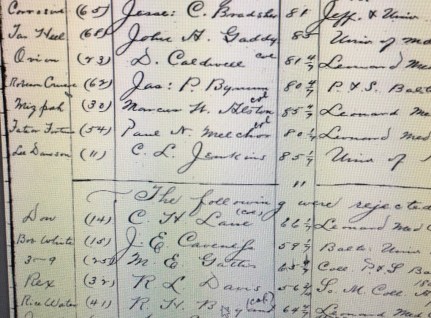 Corrosive (65) Jesse C. Bradsher 81 Jeff. & Univ.
Tar Heel (6 John H. Gaddy 8 Univ of Md
Orion (23) D. Caldwell col 81 4/7 Leonard Med
Robison Crusoe (62) Jas: P. Bynum 80 4/7 P. & S. Balt
Mizpah (32) Marcus W. Alston col 85 4/7 Leonard Med
(54) Paul N. Melchor col 80 Leonard Med
Lee Dawson (11) C. L. Jenkins 85 Univ of
The following were rejected
Don (14) C. H. Lane (col) 66 Leonard Med C
Bob White (15) J. E. Caveness 58 Balto. Univ
(25) M. E. 65 Coll. P & S Ba
Rex (32) R. L. Davis 56 So. M. Coll.
Rice Water (41) R. H. (col) 64 Leonard Med C